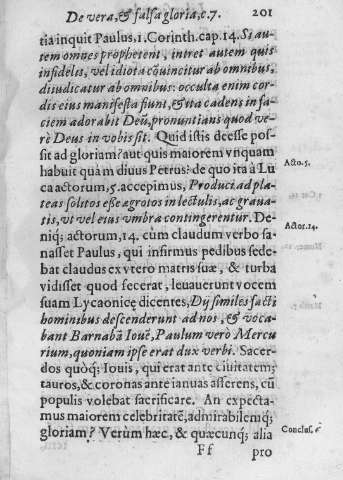 De vera, & falsa gloria, c. 7. 201
tia inquit Paulus, 1. Corinth. cap. 14. Si au-
tem omnes prophetent, intret autem quis
infidelis, vel idiota cōuincitur ab omnibus,
diiudicatur ab omnibus: occulta enim cor-
dis eius manifesta fiunt, & ita cadens in fa-
ciem adorabit Deū, pronuntians quod ve-
rè Deus in vobis sit. Quid istis deesse pos-
sit ad gloriam? aut quis maiorem vnquam
habuit quàm diuus Petrus? de quo ita à Lu
ca actorum, 5. accepimus, Produci ad pla-
teas solitos esse ægrotos in lectulis, ac graua-
tis, vt vel eius vmbra contingerentur. De-
niq; actorum, 14. cùm claudum verbo sa-
nasset Paulus, qui infirmus pedibus sede-
bat claudus ex vtero matris suæ, & turba
vidisset quod fecerat, leuauerunt vocem
suam Lycaonicę dicentes, Dij similes facti
hominibus descenderunt ad nos, & voca-
bant Barnabā Iouē, Paulum verò Mercu
rium, quoniam ipse erat dux verbi. Sacer-
dos quòq; Iouis, qui erat ante ciuitatem;
tauros, & coronas ante ianuas afferens, cū
populis volebat sacrificare. An expecta-
mus maiorem celebritatē, admirabilemq;
gloriam? Verùm hæc, & quæcunq; alia
Ff pro
Acto. 5.
Actor. 14.
Conclus.